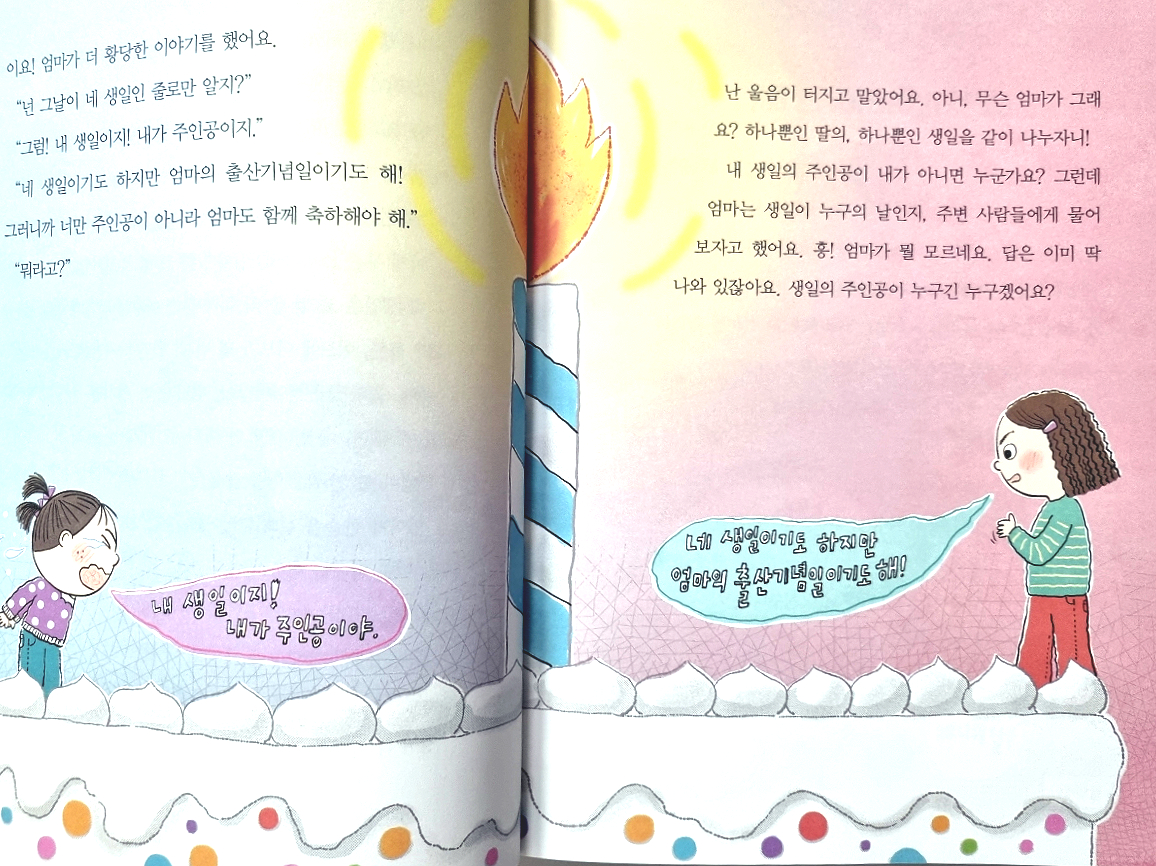 이요! 엄마가 더 황당한 이야기를 했어요.
“넌 그날이 네 생일인 줄로만 알지?”
“그럼! 내 생일이지! 내가 주인공이지.”
“네 생일이기도 하지만 엄마의 출산기념일이기도 해!
그러니까 너만 주인공이 아니라 엄마도 함께 축하해야 해.”
“뭐라고?”
내 생일이지!
내가 주인공이야.
난 울음이 터지고 말았어요. 아니, 무슨 엄마가 그래
요? 하나뿐인 딸의, 하나뿐인 생일을 같이 나누자니!
내 생일의 주인공이 내가 아니면 누군가요? 그런데
엄마는 생일이 누구의 날인지, 주변 사람들에게 물어
보자고 했어요. 흥! 엄마가 뭘 모르네요. 답은 이미 딱
나와 있잖아요. 생일의 주인공이 누구긴 누구겠어요?
네 생일이기도 하지만
엄마의 출산기념일이기도 해!